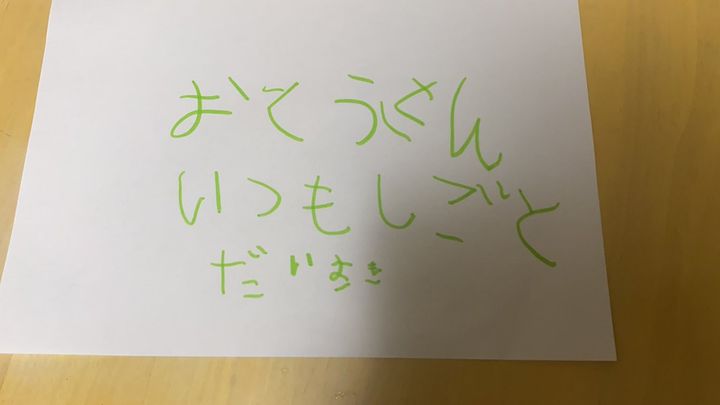 おとうさん
いつもしごと
だいすき